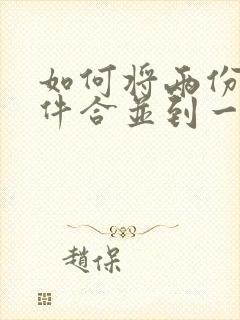 如何将两份
件合並到一
趙保